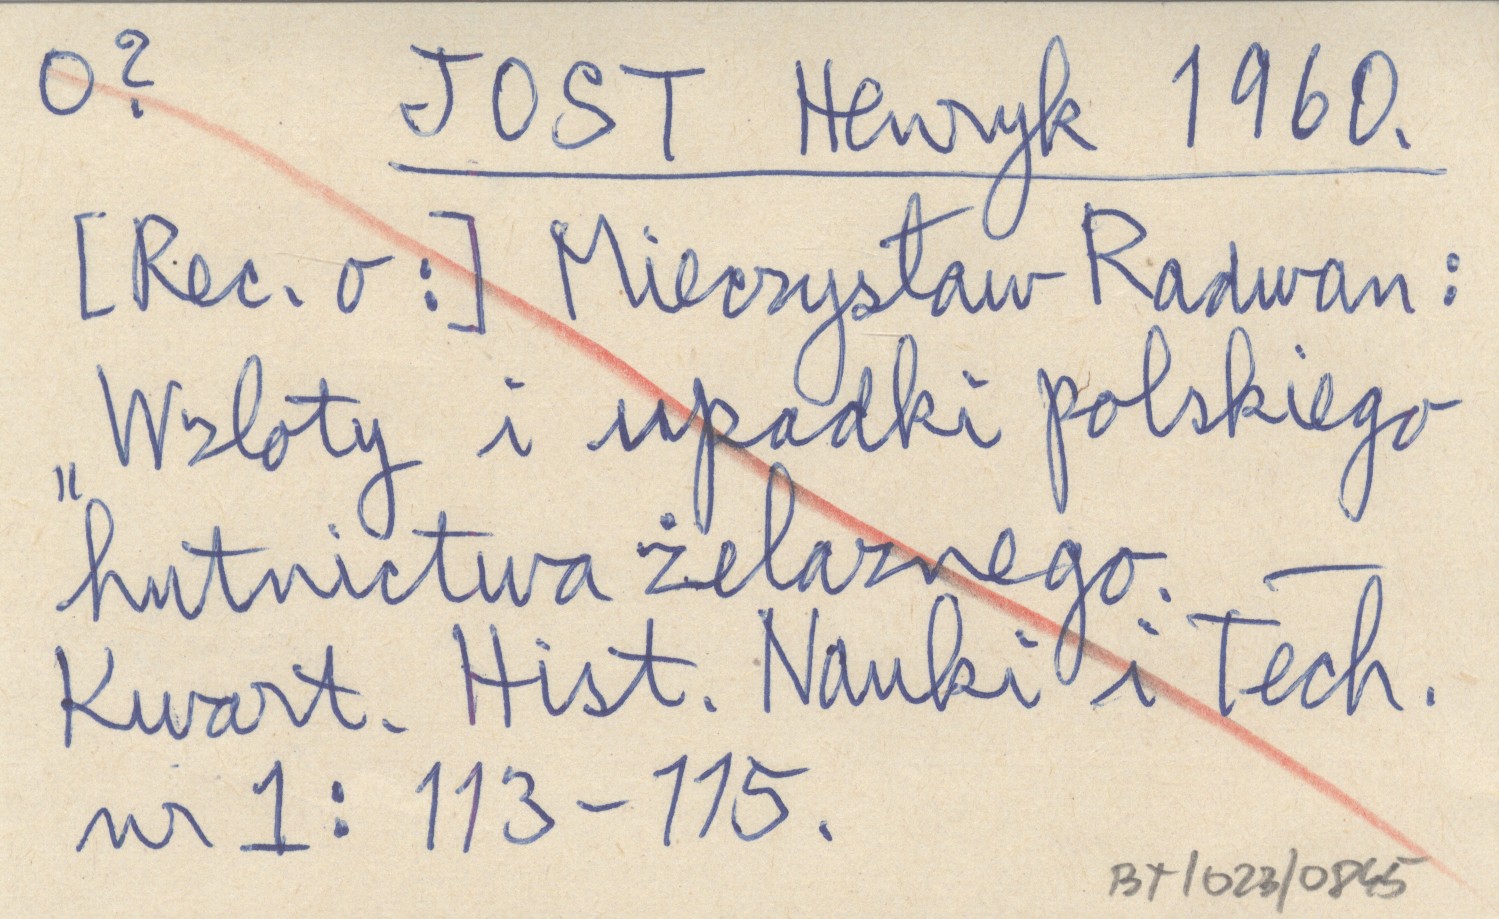 O? JOST Henryk 1960.
[Rec. o :] Mieczysław Radwan:
Wzloty i upadki polskiego
"hutnictwa żelaznego. —
Kwart. Hist. Nauki i Tech.
nr 1: 113-115.
BT/023/0845